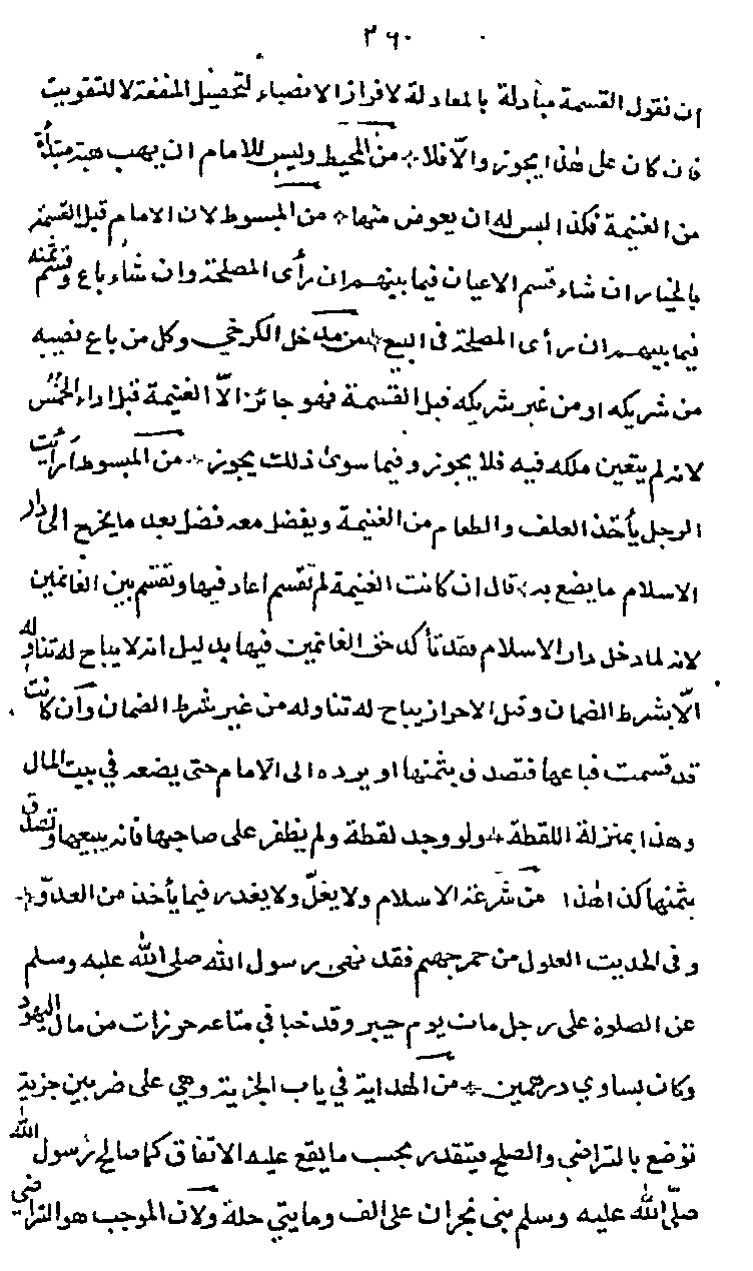 ٣٦٠
ان نقول القسمة مبادلة بالمعادلة لافراز الانصباء لتحصيل المنفعة لا للتفويت
فان كان على هذا يجوز والّا فلا ۞ من المحيط وليس للامام ان يهب هبة مبتدأة
من الغنيمة فكذا ليس له ان يعوض منها ۞ من المبسوط لان الامام قبل القسمة
بالخيار ان شاء قسم الاعيان فيما بينهم ان رأى المصلحة وان شاء باع وقسم ثمنه
فيما بينهم ان رأى المصلحة فى البيع ۞ من مدخل الكرخي وكل من باع نصيبه
من شريكه او من غير شريكه قبل القسمة فهو جائز الّا الغنيمة قبل اداء الخمس
لانه لم يتعين ملكه فيه فلا يجوز وفيما سوى ذلك يجوز ۞ من المبسوط أرأيت
الرجل يأخذ العلف والطعام من الغنيمة ويفضل معه فضل بعد ما يخرج الى دار
الاسلام ما يضع به ۞ قال ان كانت الغنيمة لم تقسم اعاد فيها وتقسم بين الغانمين
لانه لما دخل دار الاسلام فقد تأكد حق الغانمين فيها بدليل انه لا يباح له تناوله
الّا بشرط الضمان وقبل الاحراز يباح له تناوله من غير شرط الضمان وان كانت
قد قسمت فباعها فتصدق بثمنها او يرده الى الامام حتى يضعه في بيت المال
وهذا بمنزلة اللقطة ۞ ولو وجد لقطة ولم يظفر على صاحبها فانه يبيعها وتصدق
بثمنها كذا هذا من شرعة الاسلام ولا يغلّ ولا يغدر فيما يأخذ من العدوّ ۞
وفى الحديت العلول من حمر جهنم فقد نهى رسول الله صلى الله عليه وسلم
عن الصلوة على رجل مات يوم خيبر وقد خبا في متاعه حرزات من مال اليهود
وكان يساوي درهمين ۞ من الهداية في باب الجزية وهي على ضربين جزية
توضع بالتراضي والصلح فيتقدر بحسب ما يقع عليه الاتفاق كما صالح رسول الله
صلّى الله عليه وسلم بنى نجران على الف ومايتي حلة ولان الموجب هو التراضي